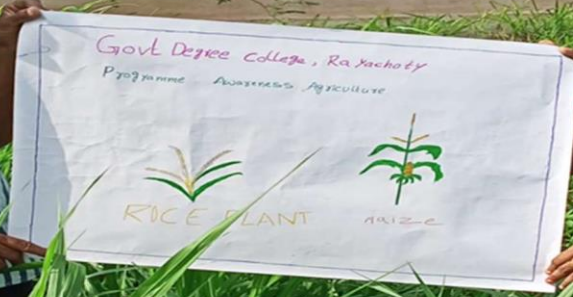 Govt Degree College, Rayachoty
Programme Awareness Agriculture
RICE PLANT maize